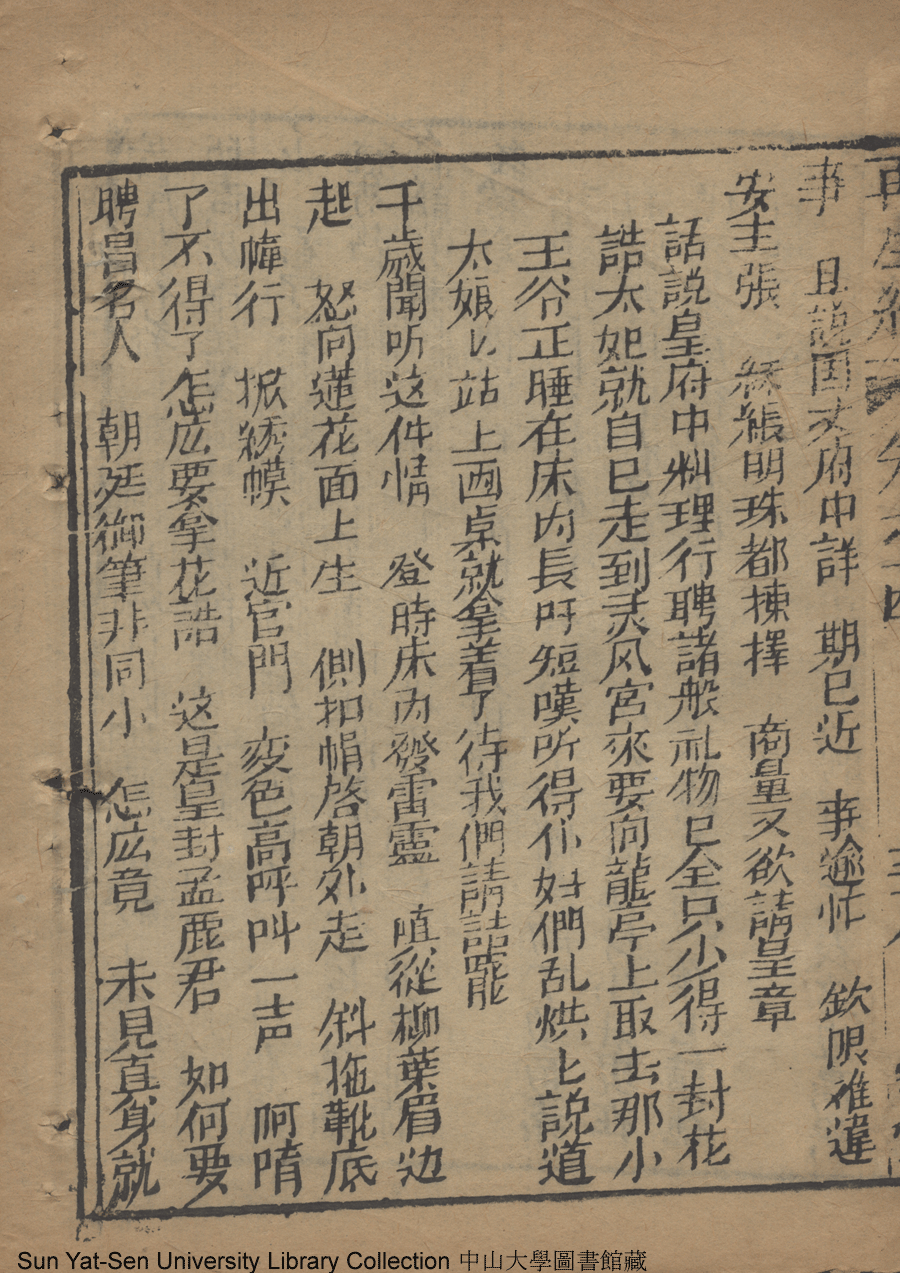 再生緣
事　且説国丈府中詳　期已近　事逾忙　欽限难違
安主張　綵緞明珠都揀擇　商量又欲請皇章
話説皇府中料理行聘諸般礼物已全只少得一封花
誥太妃就自己走到灵风宮來要向龍亭上取去那小
王爷正睡在床内長吁短嘆听得仆妇們乱烘匕説道
太娘匕站上画桌就拿着了待我們請誥罷
千歳聞听这件情　登時床内發雷霆　嗔從柳葉眉边
起　怒向蓮花面上生　側扣帽啓朝外走　斜拖靴底
出幃行　掀綉幙　近宫門　変色高呼叫一声　呵唷
了不得了怎広要拿花誥　这是皇封孟麗君　如何要
聘冒名人　朝廷御筆非同小　怎広竟　未見真身就
Sun Yat-Sen University Library Collection 中山大學圖書館藏